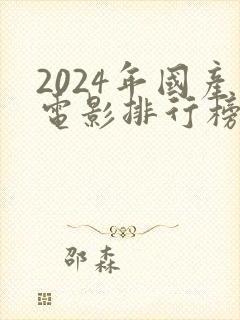 2024年國產
電影排行榜
邵森